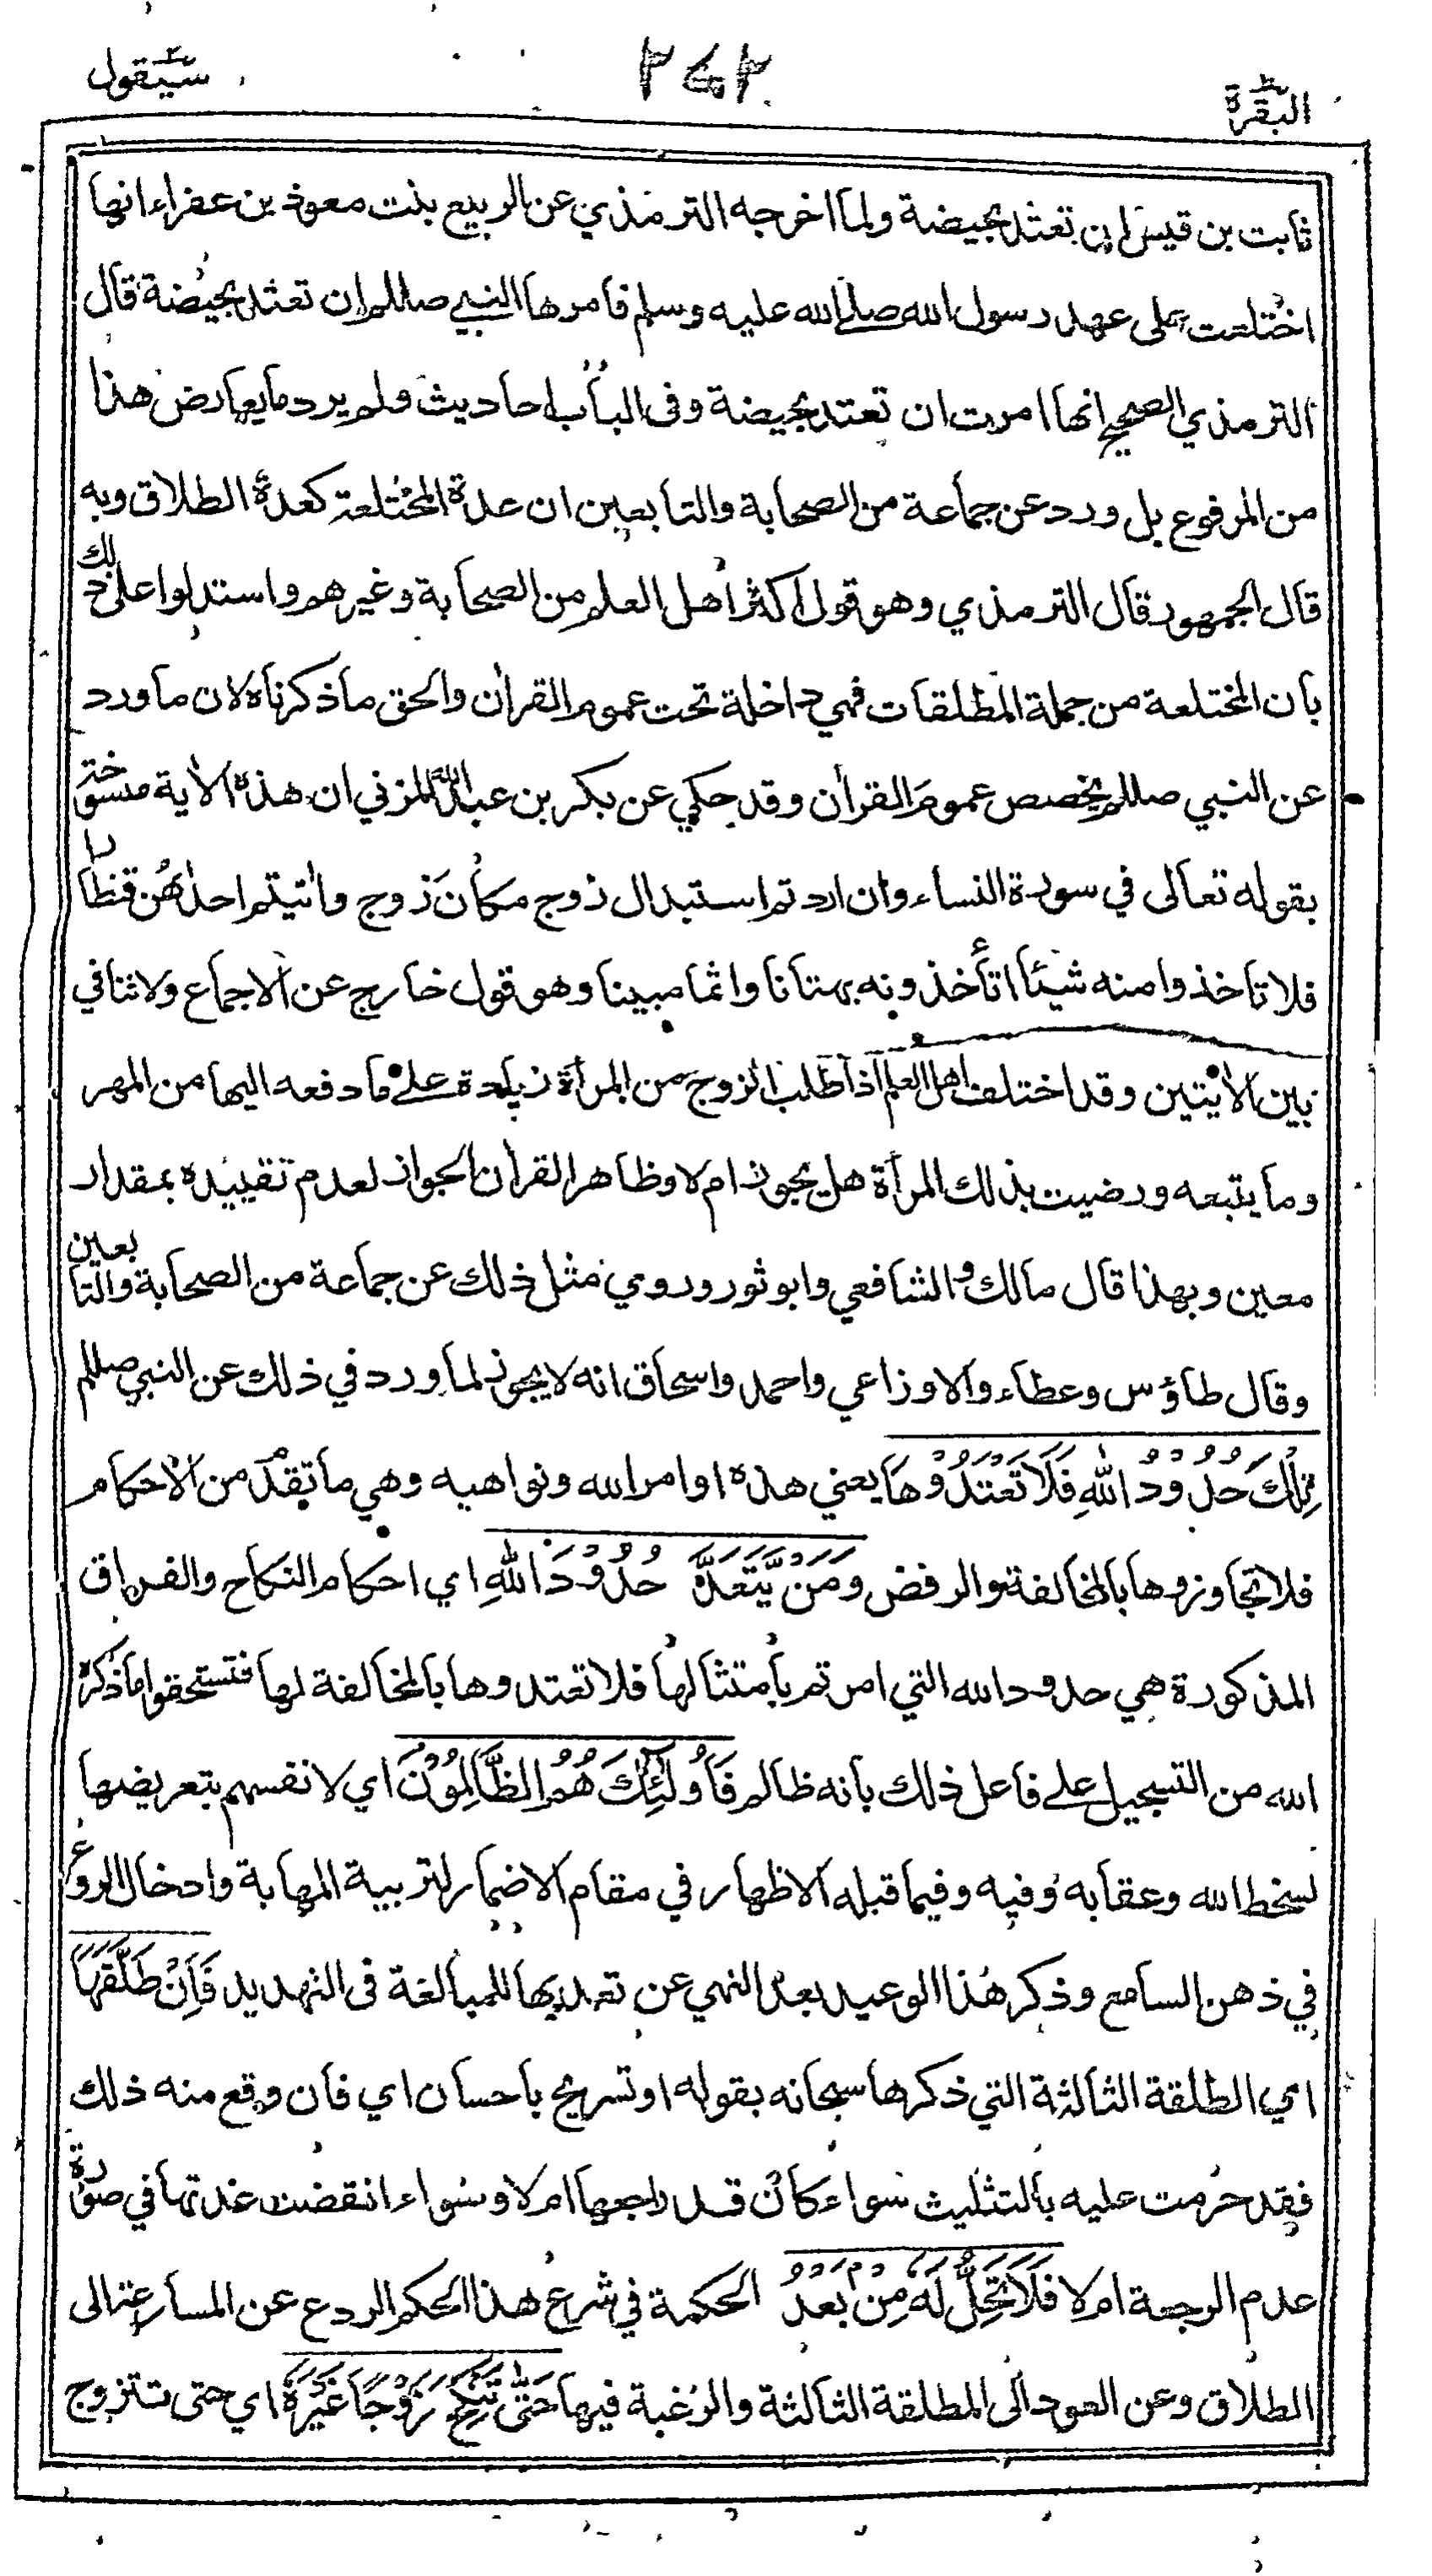 البقرة ٢٧٢ سيقول
ثابت بن قيس ان تعتد بحيضة ولما اخرجه الترمذي عن الربيع بنت معوذ بن عفراء انها
اختلعت على عهد رسول الله صلى الله عليه وسلم فامرها النبي صللم ان تعتد بحيضة قال
الترمذي الصحيح انها امرت ان تعتد بحيضة وفي الباب احاديث ولم يرد ما يعارض هذا
من المرفوع بل ورد عن جماعة من الصحابة والتابعين ان عدة المختلعة كعدة الطلاق وبه
قال الجمهور قال الترمذي وهو قول اكثر اهل العلم من الصحابة وغيرهم واستدلوا على ذلك
بان المختلعة من جملة المطلقات فهي داخلة تحت عموم القرأن والحق ما ذكرناه لان ما ورد
عن النبي صللم يخصص عموم القرأن وقد حكي عن بكر بن عبد الله المزني ان هذه الأية منسوخة
بقوله تعالى في سورة النساء وان اردتم استبدال زوج مكان زوج وأتيتم احدٰهن قنطارا
فلا تاخذوا منه شيئا اتأخذونه بهتانا واثما مبينا وهو قول خارج عن الاجماع ولا تنافي
بين الأيتين وقد اختلف اهل العلم اذا طلب الزوج من المرأة زيادة على ما دفعه اليها من المهر
وما يتبعه ورضيت بذلك المرأة هل يجوز ام لا وظاهر القرأن الجواز لعدم تقييده بمقدار
معين وبهذا قال مالك والشافعي وابو ثور وروي مثل ذلك عن جماعة من الصحابة والتابعين
وقال طاؤس وعطاء والاوزاعي واحمد واسحاق انه لا يجوز لما ورد في ذلك عن النبي صللم
تِلْكَ حُدُوْدُ اللهِ فَلَا تَعْتَدُوْهَا يعني هذه اوامر الله ونواهيه وهي ما تقدم من الاحكام
فلا تجاوزوها بالمخالفة والرفض وَمَنْ يَّتَعَدَّ حُدُوْدَ اللهِ اي احكام النكاح والفراق
المذكورة هي حدود الله التي امرتم بامتثالها فلا تعتدوها بالمخالفة لها فتستحقوا ما ذكره
الله من التسجيل على فاعل ذلك بانه ظالم فَأُولٰئِكَ هُمُ الظَّالِمُوْنَ اي لانفسهم بتعريضها
لسخط الله وعقابه وفيه وفيما قبله الاظهار في مقام الاضمار لتربية المهابة وادخال الروع
في ذهن السامع وذكر هذا الوعيد بعد النهي عن تعديها للمبالغة في التهديد فَاِنْ طَلَّقَهَا
اي الطلقة الثالثة التي ذكرها سبحانه بقوله او تسريح باحسان اي فان وقع منه ذلك
فقد حرمت عليه بالتثليث سواء كان قد راجعها ام لا وسواء انقضت عدتها في صورة
عدم الرجعة ام لا فَلَا تَحِلُّ لَهٗ مِنْ بَعْدُ الحكمة في شرع هذا الحكم الردع عن المسارعة الى
الطلاق وعن العود الى المطلقة الثالثة والرغبة فيها حَتّٰى تَنْكِحَ زَوْجًا غَيْرَهٗ اي حتى تتزوج